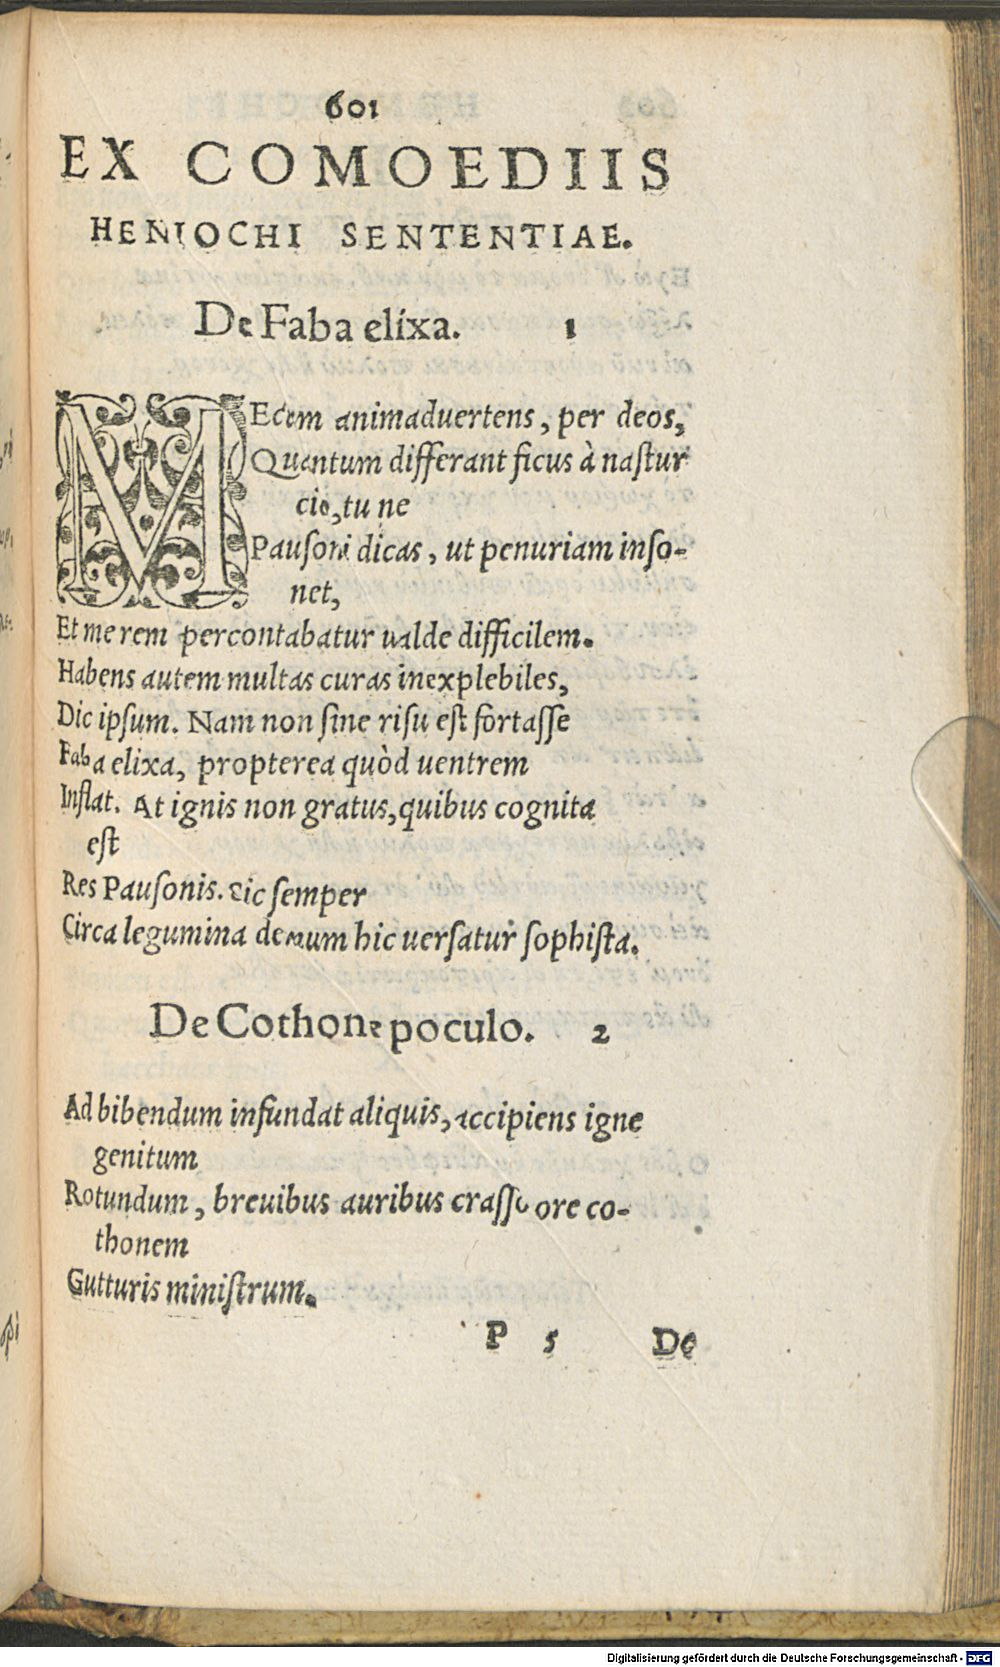 601
EX COMOEDIIS
HENIOCHI SENTENTIAE.
De Faba elixa. 1
MEcum animaduertens, per deos,
Quantum differant ficus à naſtur
cio, tu ne
Pauſoni dicas, ut penuriam inſo-
net,
Et me rem percontabatur ualde difficilem.
Habens autem multas curas inexplebiles,
Dic ipſum. Nam non ſine riſu eſt fortaſſe
Faba elixa, propterea quòd uentrem
Inflat. At ignis non gratus, quibus cognita
eſt
Res Pauſonis. Sic ſemper
Circa legumina demum hic uerſatur ſophiſta.
De Cothone poculo. 2
Ad bibendum infundat aliquis, accipiens igne
genitum
Rotundum, breuibus auribus craſſo ore co-
thonem
Gutturis miniſtrum.
P 5 De
Digitalisierung gefördert durch die Deutsche Forschungsgemeinschaft - DFG